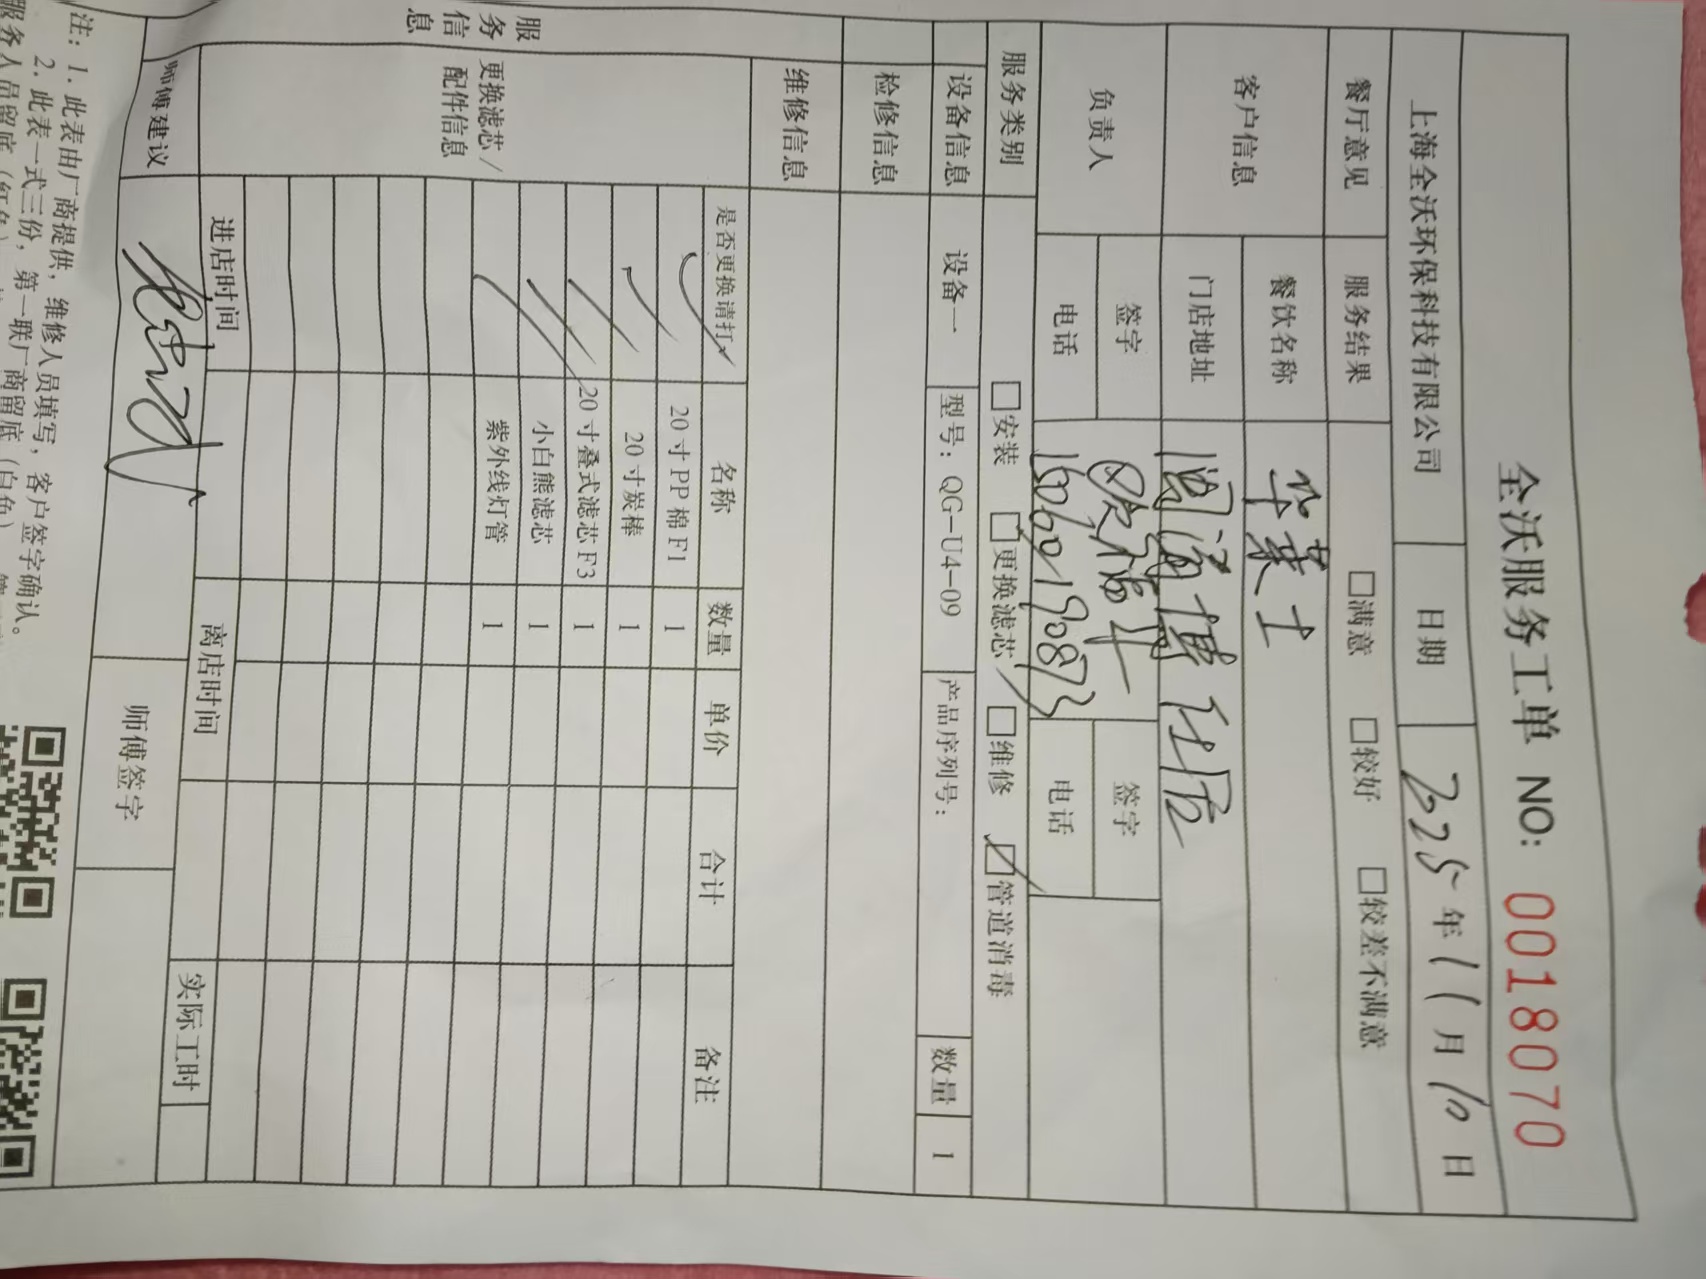 全沃服务工单 NO: 0018070
上海全沃环保科技有限公司 日期 225年11月10日
餐厅意见 服务结果 □满意 □较好 □较差不满意
客户信息 餐饮名称 华莱士
门店地址 闽海博仕后
负责人 签字 签字
电话 15060190873 电话
服务类别 □安装 □更换滤芯 □维修 ☑管道消毒
设备信息 设备一 型号: QG-U4-09 产品序列号: 数量 1
检修信息
维修信息
服务信息
更换滤芯/配件信息
是否更换请打√ 名称 数量 单价 合计 备注
✓ 20寸PP棉F1 1
✓ 20寸炭棒 1
✓ 20寸叠式滤芯F3 1
✓ 小白熊滤芯 1
✓ 紫外线灯管 1
进店时间 离店时间 实际工时
师傅建议 师傅签字
注: 1. 此表由厂商提供, 维修人员填写, 客户签字确认。
2. 此表一式三份, 第一联厂商留底(白色)
服务人员留底(红色)